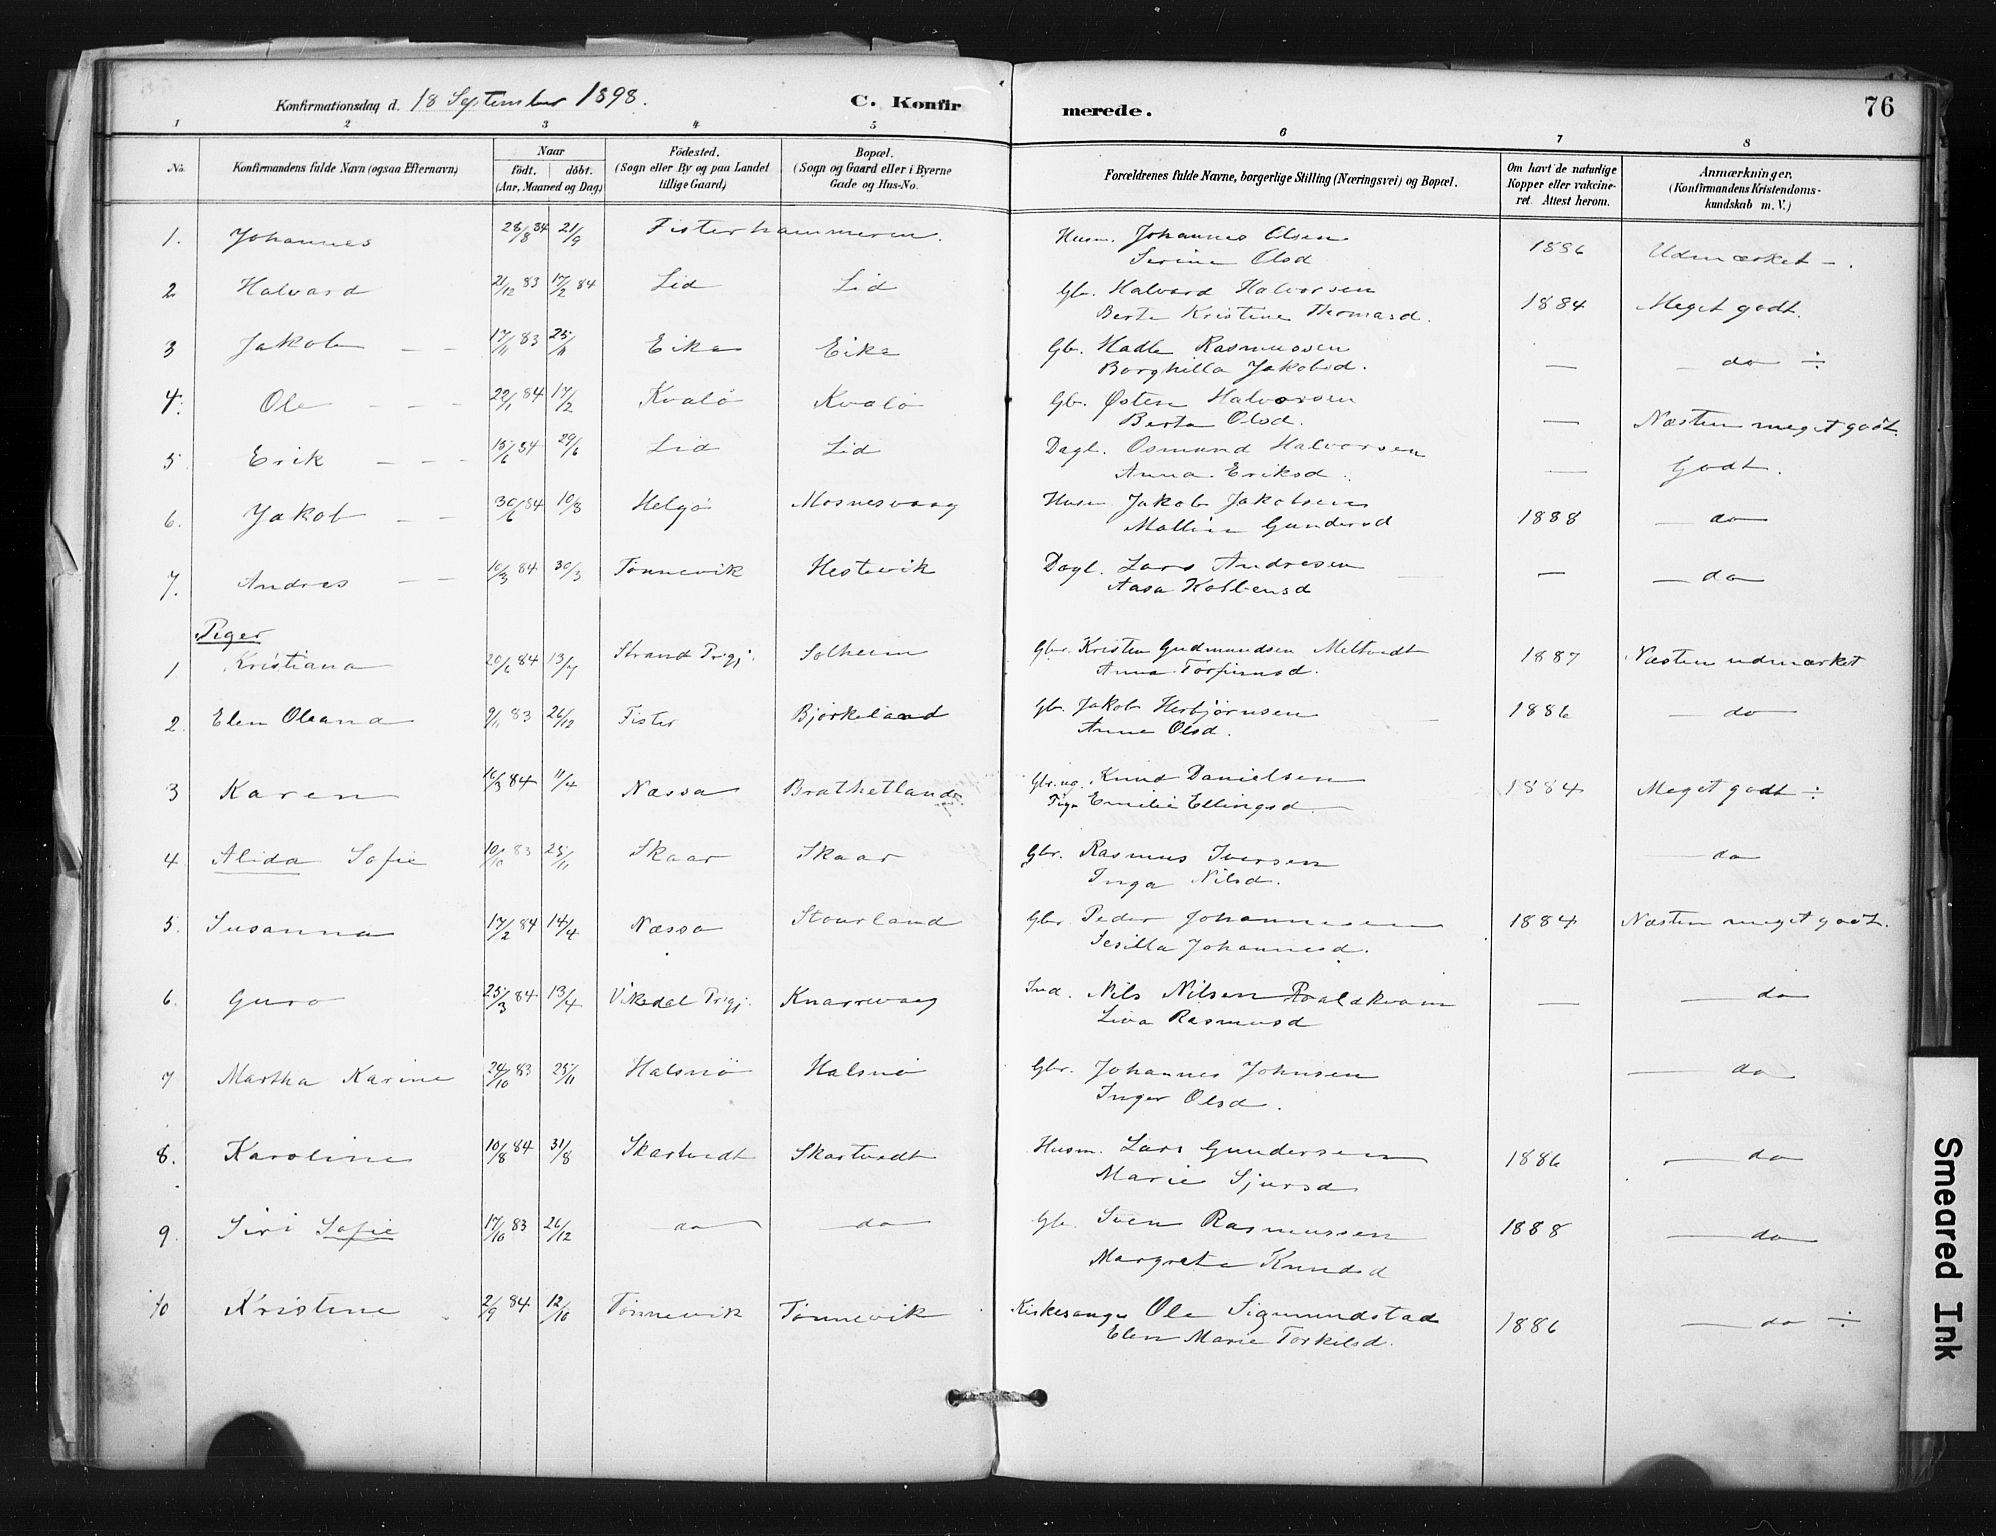 Konfirmationsdag d. 18 September 1898. C. Konfirmerede. 76
1 2 3 4 5 6 7 8
No. Konfirmandens fulde Navn (ogsaa Efternavn) Naar födt. döbt. (Aar, Maaned og Dag) Födested. (Sogn eller By og paa Landet tillige Gaard) Bopæl. (Sogn og Gaard eller i Byerne Gade og Hus-No. Forældrenes fulde Navne, borgerlige Stilling (Næringsvei) og Bopæl. Om havt de naturlige Kopper eller vakcineret. Attest herom. Anmærkninger. (Konfirmandens Kristendomskundskab m. V.)
1. Johannes 28/8 84 21/9 Fisterhammeren. Husm. Johannes Olsen 1886 Udmærket -.
Serine Olsd
2 Halvard 21/12 83 17/2 84 Lid Lid Gbr. Halvard Halvorsen 1884 Meget godt.
Berte Kristine Thomasd.
3 Jakob — — 17/11 83 25/11 Eike Eike Gbr. Hadle Rasmussen — — do ÷
Borghilla Jakobsd.
4. Ole — — — 22/1 84 17/2 Kvalø Kvalø Gbr. Østen Halvorsen — Næsten meget godt.
Berta Olsd.
5 Erik — — — 15/6 84 29/6 Lid Lid Dagl. Osmund Halvorsen — Godt.
Anna Eriksd.
6. Jakob — — 30/6 84 10/8 Helgø Mosnesvaag Husm Jakob Jakobsen 1888 — do
Mallin Gundersd
7. Andres — — 10/3 84 30/3 Tønnevik Hestevik Dagl. Lars Andresen — — do
Aasa Kolbensd
Piger
1 Kristiana 20/6 84 13/7 Strand Prgj. Solheim Gbr. Kristen Gudmundsen Meltvedt 1887 Næsten udmærket
Anna Torfinnsd.
2. Elen Oleana 9/11 83 26/12 Fister Bjørkeland Gbr. Jakob Herbjørnsen 1886 — do
Anne Olsd.
3 Karen 16/3 84 11/4 Næssa Brathetland Gbr. ug. Knud Danielsen 1884 Meget godt ÷
Pige Emilie Ellingsd
4. Alida Sofie 10/10 83 25/11 Skaar Skaar Gbr. Rasmus Iversen — do
Inga Nilsd.
5. Susanna 17/2 84 14/4 Næssa Stourland Gbr Peder Johannesen 1884 Næsten meget godt.
Sesilla Johannesd.
6. Guro 25/3 84 13/4 Vikedal Prgj. Knarrevaag Ind. Nils Nilsen Roaldkvam — — do
Liva Rasmusd
7 Martha Karine 24/10 83 25/11 Halsnö Halsnö Gbr. Johannes Johnsen — do
Inger Olsd.
8. Karoline 10/8 84 31/8 Skartvedt Skartvedt Husm. Lars Gundersen 1886 — do
Marie Sjursd
9. Siri Sofie 17/10 83 26/12 — do — — do — Gb. Sven Rasmussen 1888 — do
Margrete Knudsd
10 Kristine 2/9 84 12/10 Tønnevik Tønnevik Kirkesanger Ole Sigmundstad 1886 — do ÷
Elen Marie Torkilsd.
Smeared Ink